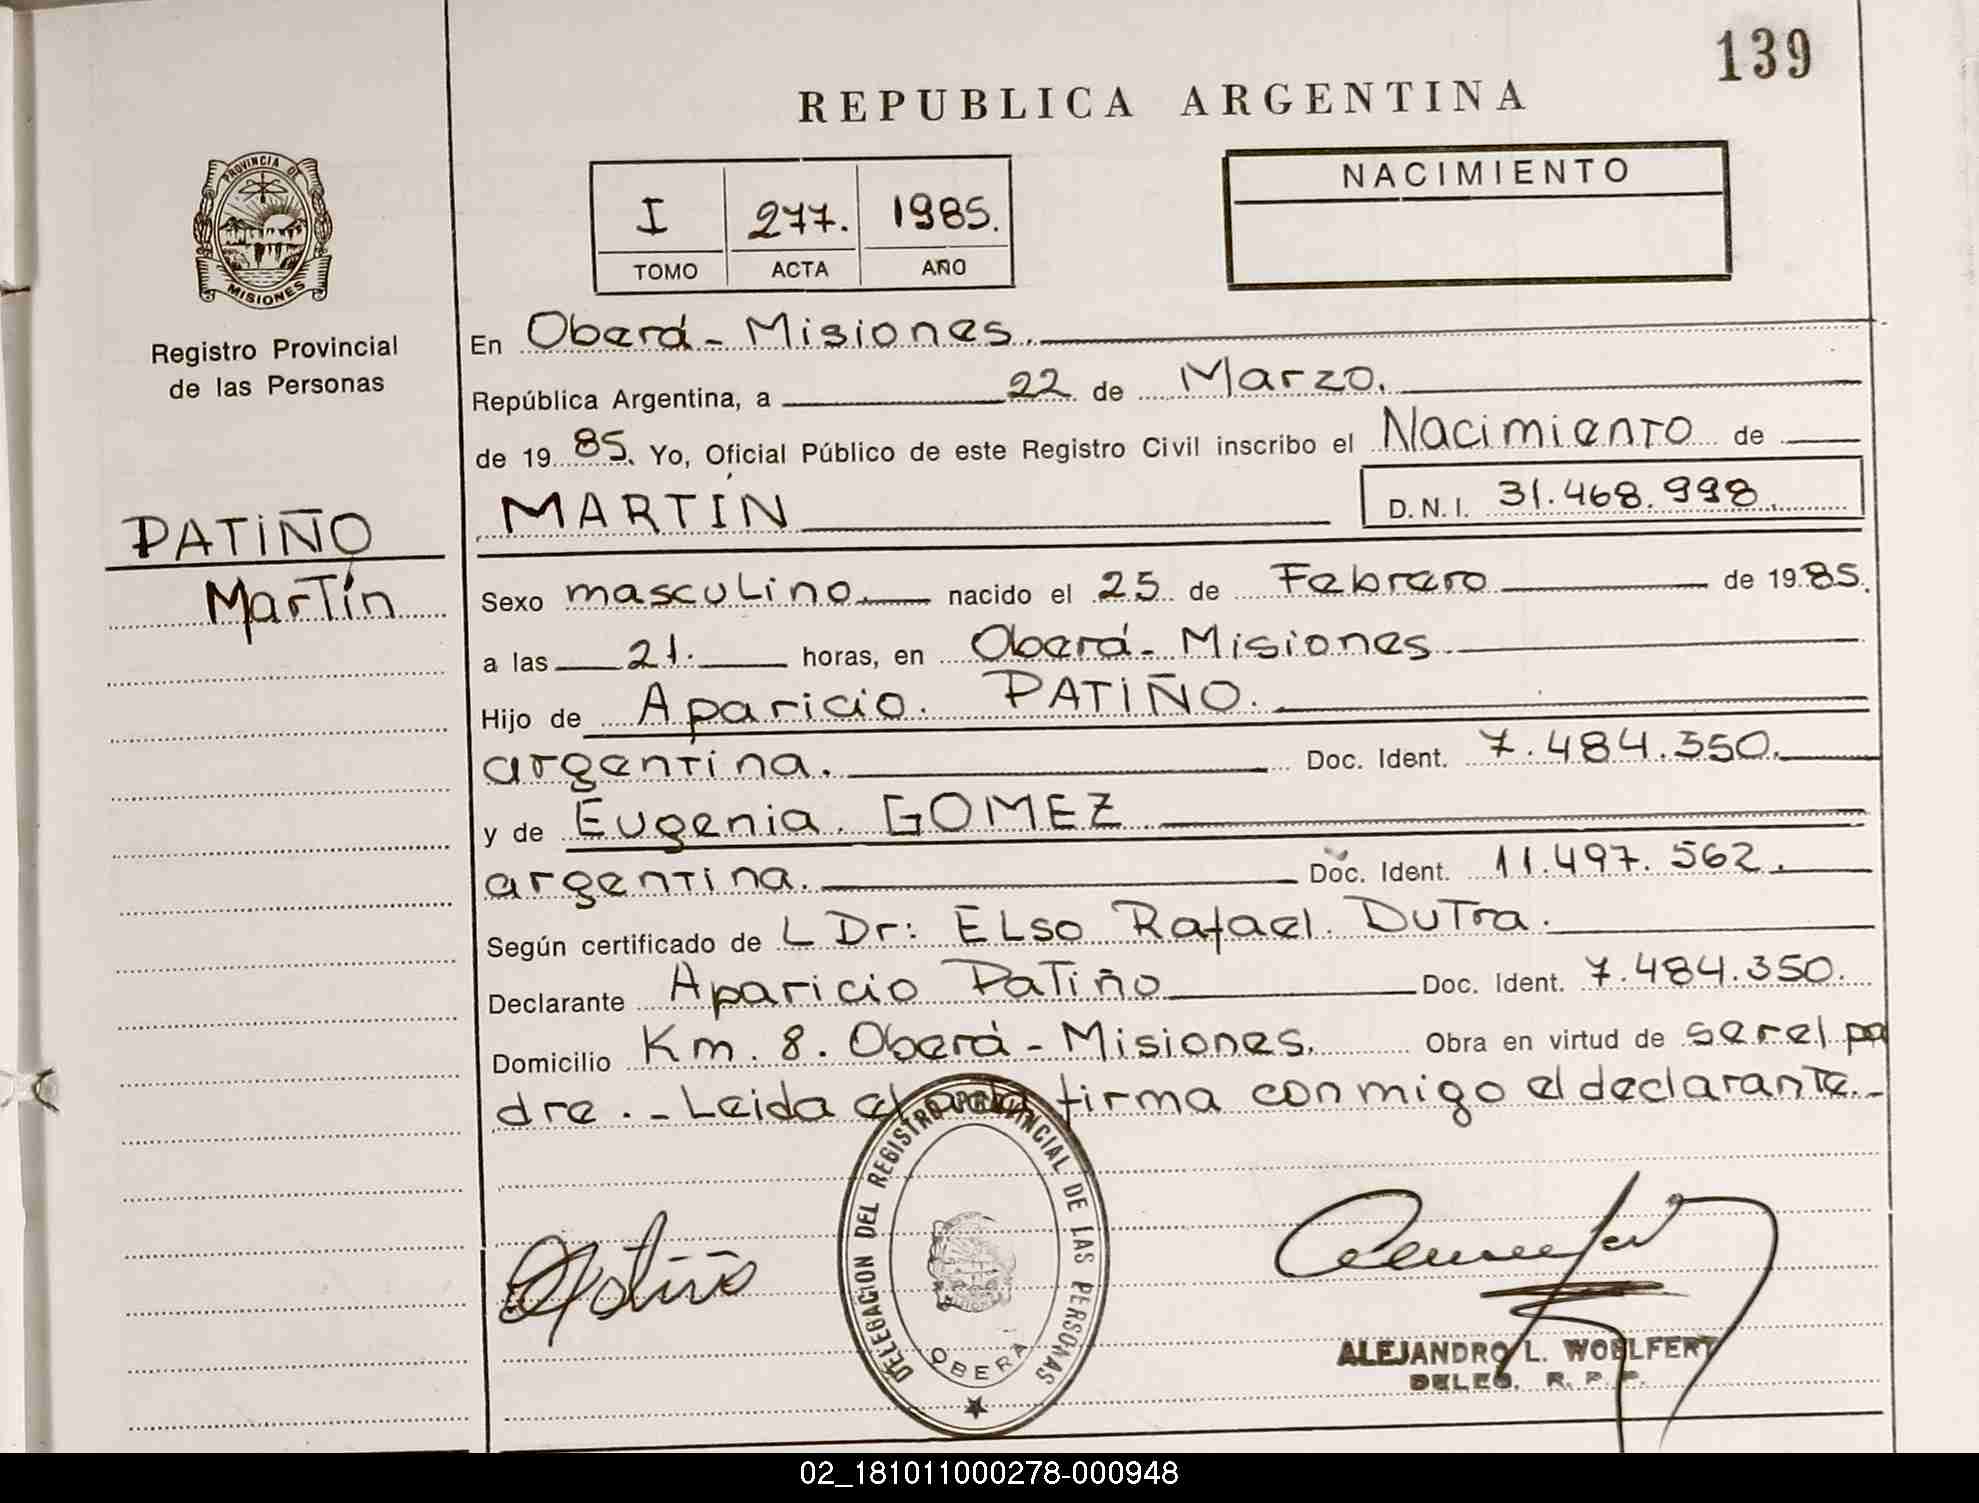 139
REPUBLICA ARGENTINA
PROVINCIA DE
MISIONES
Registro Provincial
de las Personas
I 277. 1985.
TOMO ACTA AÑO
NACIMIENTO
En Oberá - Misiones.
República Argentina, a 22 de Marzo.
de 19 85. Yo, Oficial Público de este Registro Civil inscribo el Nacimiento de
MARTÍN D.N.I. 31.468.998.
PATIÑO
Martín
Sexo masculino. nacido el 25 de Febrero de 19 85.
a las 21. horas, en Oberá - Misiones
Hijo de Aparicio. PATIÑO.
argentina. Doc. Ident. 7.484.350.
y de Eugenia. GOMEZ
argentina. Doc. Ident. 11.497.562.
Según certificado de L Dr: Elso Rafael. Dutra.
Declarante Aparicio Patiño Doc. Ident. 7.484.350.
Domicilio Km. 8. Oberá - Misiones. Obra en virtud de ser el pa
dre. - Leida el acta firma conmigo el declarante. -
DELEGACION DEL REGISTRO PROVINCIAL DE LAS PERSONAS
OBERA
ALEJANDRO L. WOELFERT
DELEG. R. P. P.
02_181011000278-000948